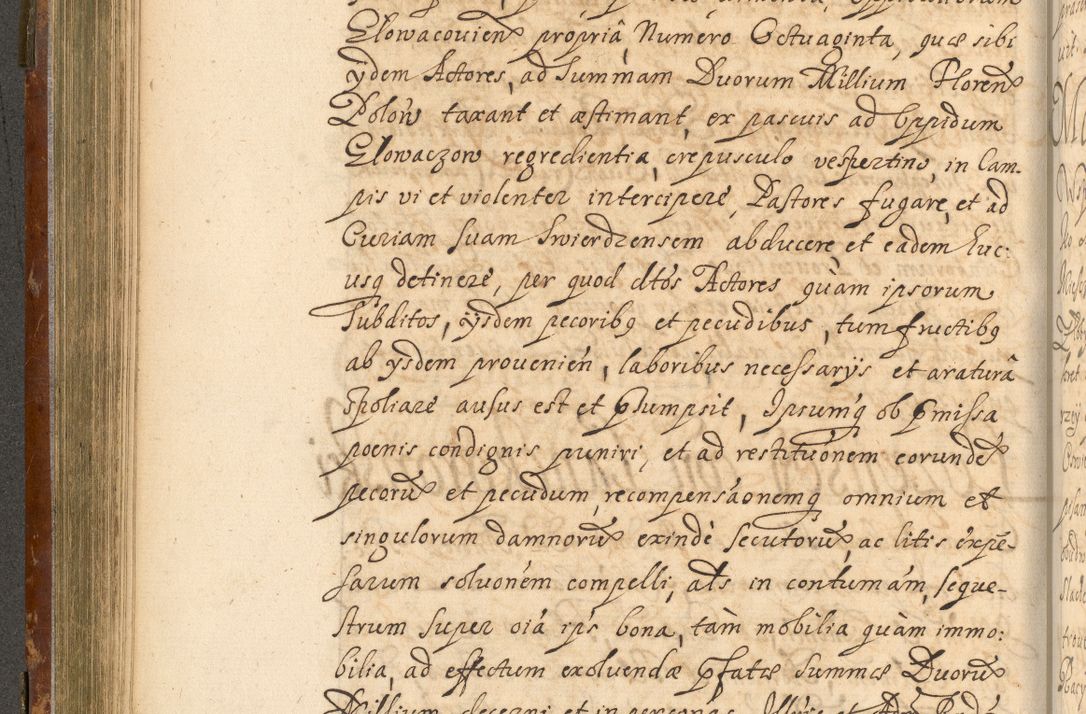 Glowacovien propriâ, Numero Octuaginta, quæ sibi
ydem Actores, ad Summam Duorum Millium Floren
Polon taxant et æstimant, ex pascuis ad Oppidum
Glowaczow regredientia, crepusculo vespertino, in Cam-
pis vi et violenter intercipere, Pastores fugare, et ad
Curiam suam Swierdzensem abducere, et eadem huc:
usq detinere, per quod dtos Actores quàm ipsorum
Subditos, ijsdem pecoribq et pecudibus, tum fructibq
ab ysdem provenien, laboribus necessarys et araturâ
spoliare ausus est et psumpsit, Ipsumq ob pmissa
poenis condignis puniri, et ad restituonem eorunde
pecoru et pecudum, recompensaonemq omnium et
singulorum damnoru exindè secutoru, ac litis expe-
sarum soluonem compelli, als in contumám, seque-
strum super oia ips bona, tàm mobilia quàm immo:
bilia, ad effectum exoluendæ pfatæ Summæ Duoru
Millium decerni et in personas Illris et